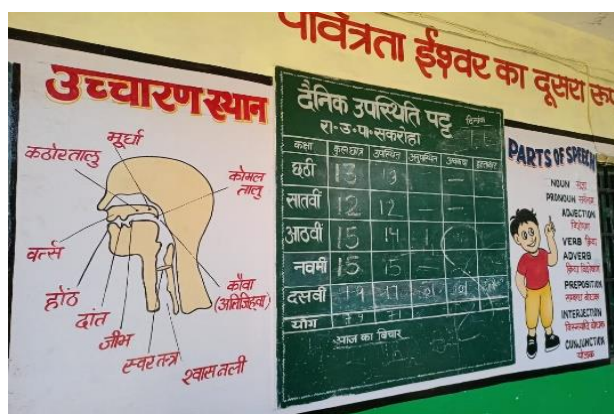 पवित्रता ईश्वर का दूसरा रूप
उच्चारण स्थान
मूर्धा
कठोर तालु
कोमल तालु
वर्त्स
होंठ
दांत
जीभ
स्वर तन्त्र
श्वास नली
कौवा
(अलिजिह्वा)
दैनिक उपस्थिति पट्ट
दिनांक
रा॰उ॰पा॰सकरोहा
कक्षा कुल छात्र उपस्थित अनुपस्थित अवकाश
छठी 13 13 — —
सातवीं 12 12 — —
आठवीं 15 14 1
नवमी 15 15
दसवीं
योग
आज का विचार
PARTS OF SPEECH
NOUN संज्ञा
PRONOUN सर्वनाम
ADJECTION
विशेषण
VERB क्रिया
ADVERB
क्रिया विशेषण
PREPOSITION
सम्बन्ध बोधक
INTERJECTION
विस्मयादि बोधक
CONJUNCTION
योजक